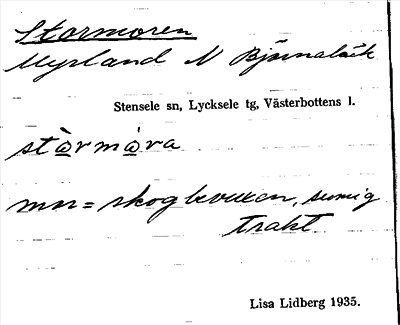 Stormoren
Myrland N Björnabäck
Stensele sn, Lycksele tg, Västerbottens l.
stòrmòra
mn = skogbevuxen, sumig
trakt
Lisa Lidberg 1935.